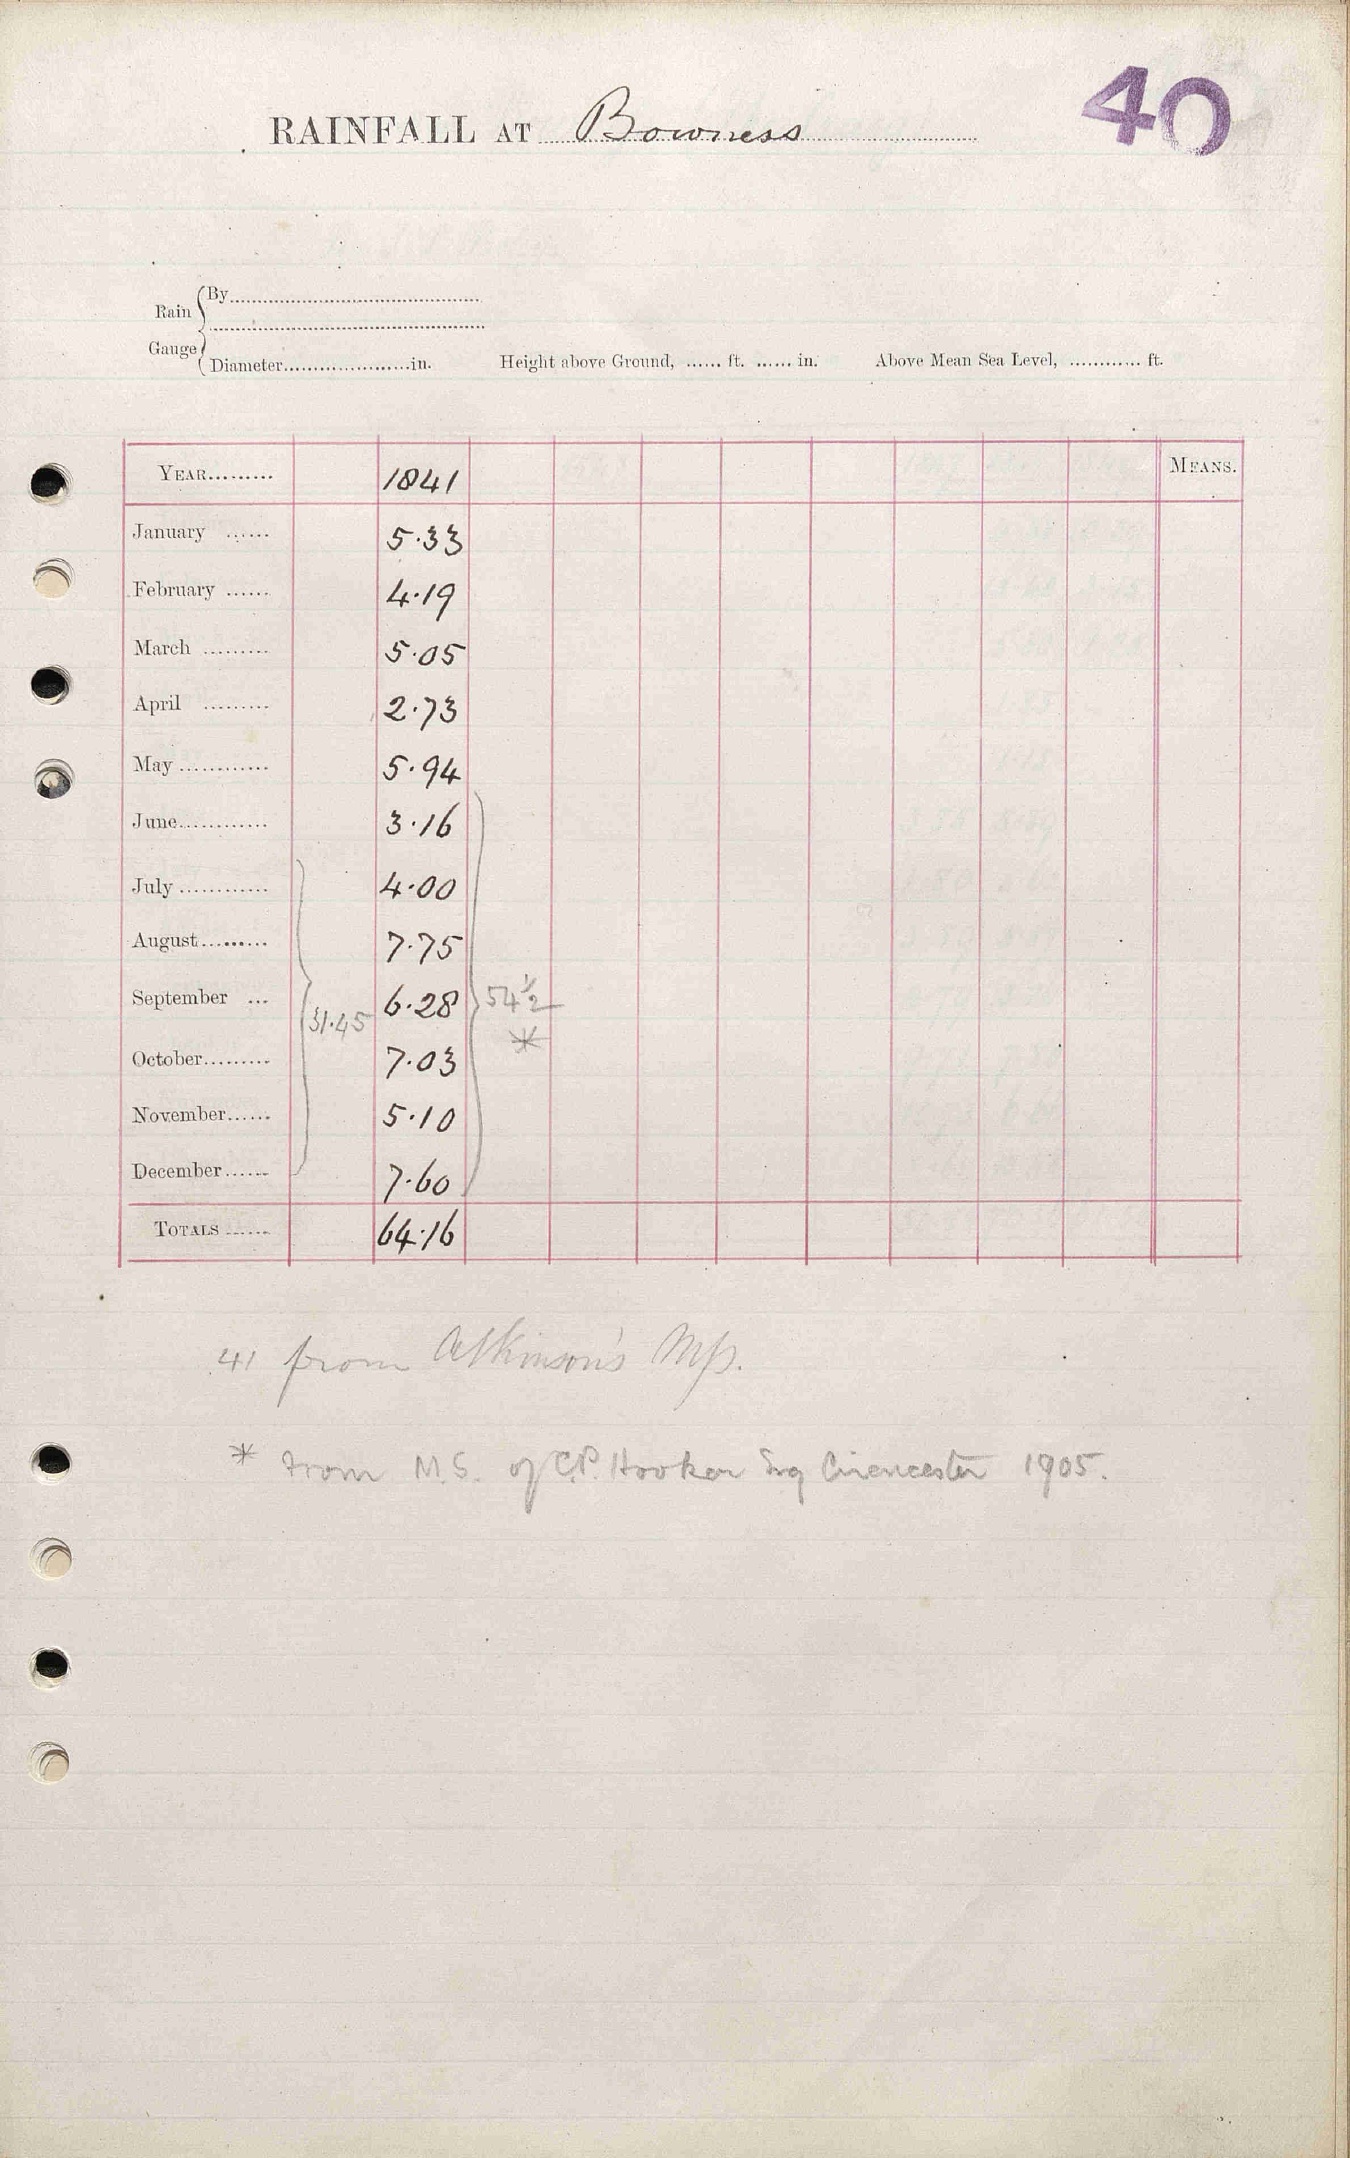 40
RAINFALL AT Bowness
Rain Gauge { By
Diameter in. Height above Ground, ft. in. Above Mean Sea Level, ft.
YEAR 1841 MEANS.
January 5.33
February 4.19
March 5.05
April 2.73
May 5.94
June 3.16
July 4.00
August 7.75
September 6.28 54½
31.45 *
October 7.03
November 5.10
December 7.60
TOTALS 64.16
41 from Atkinson's
* From M.S. of C.P. Hooker Esq Cirencester 1905.